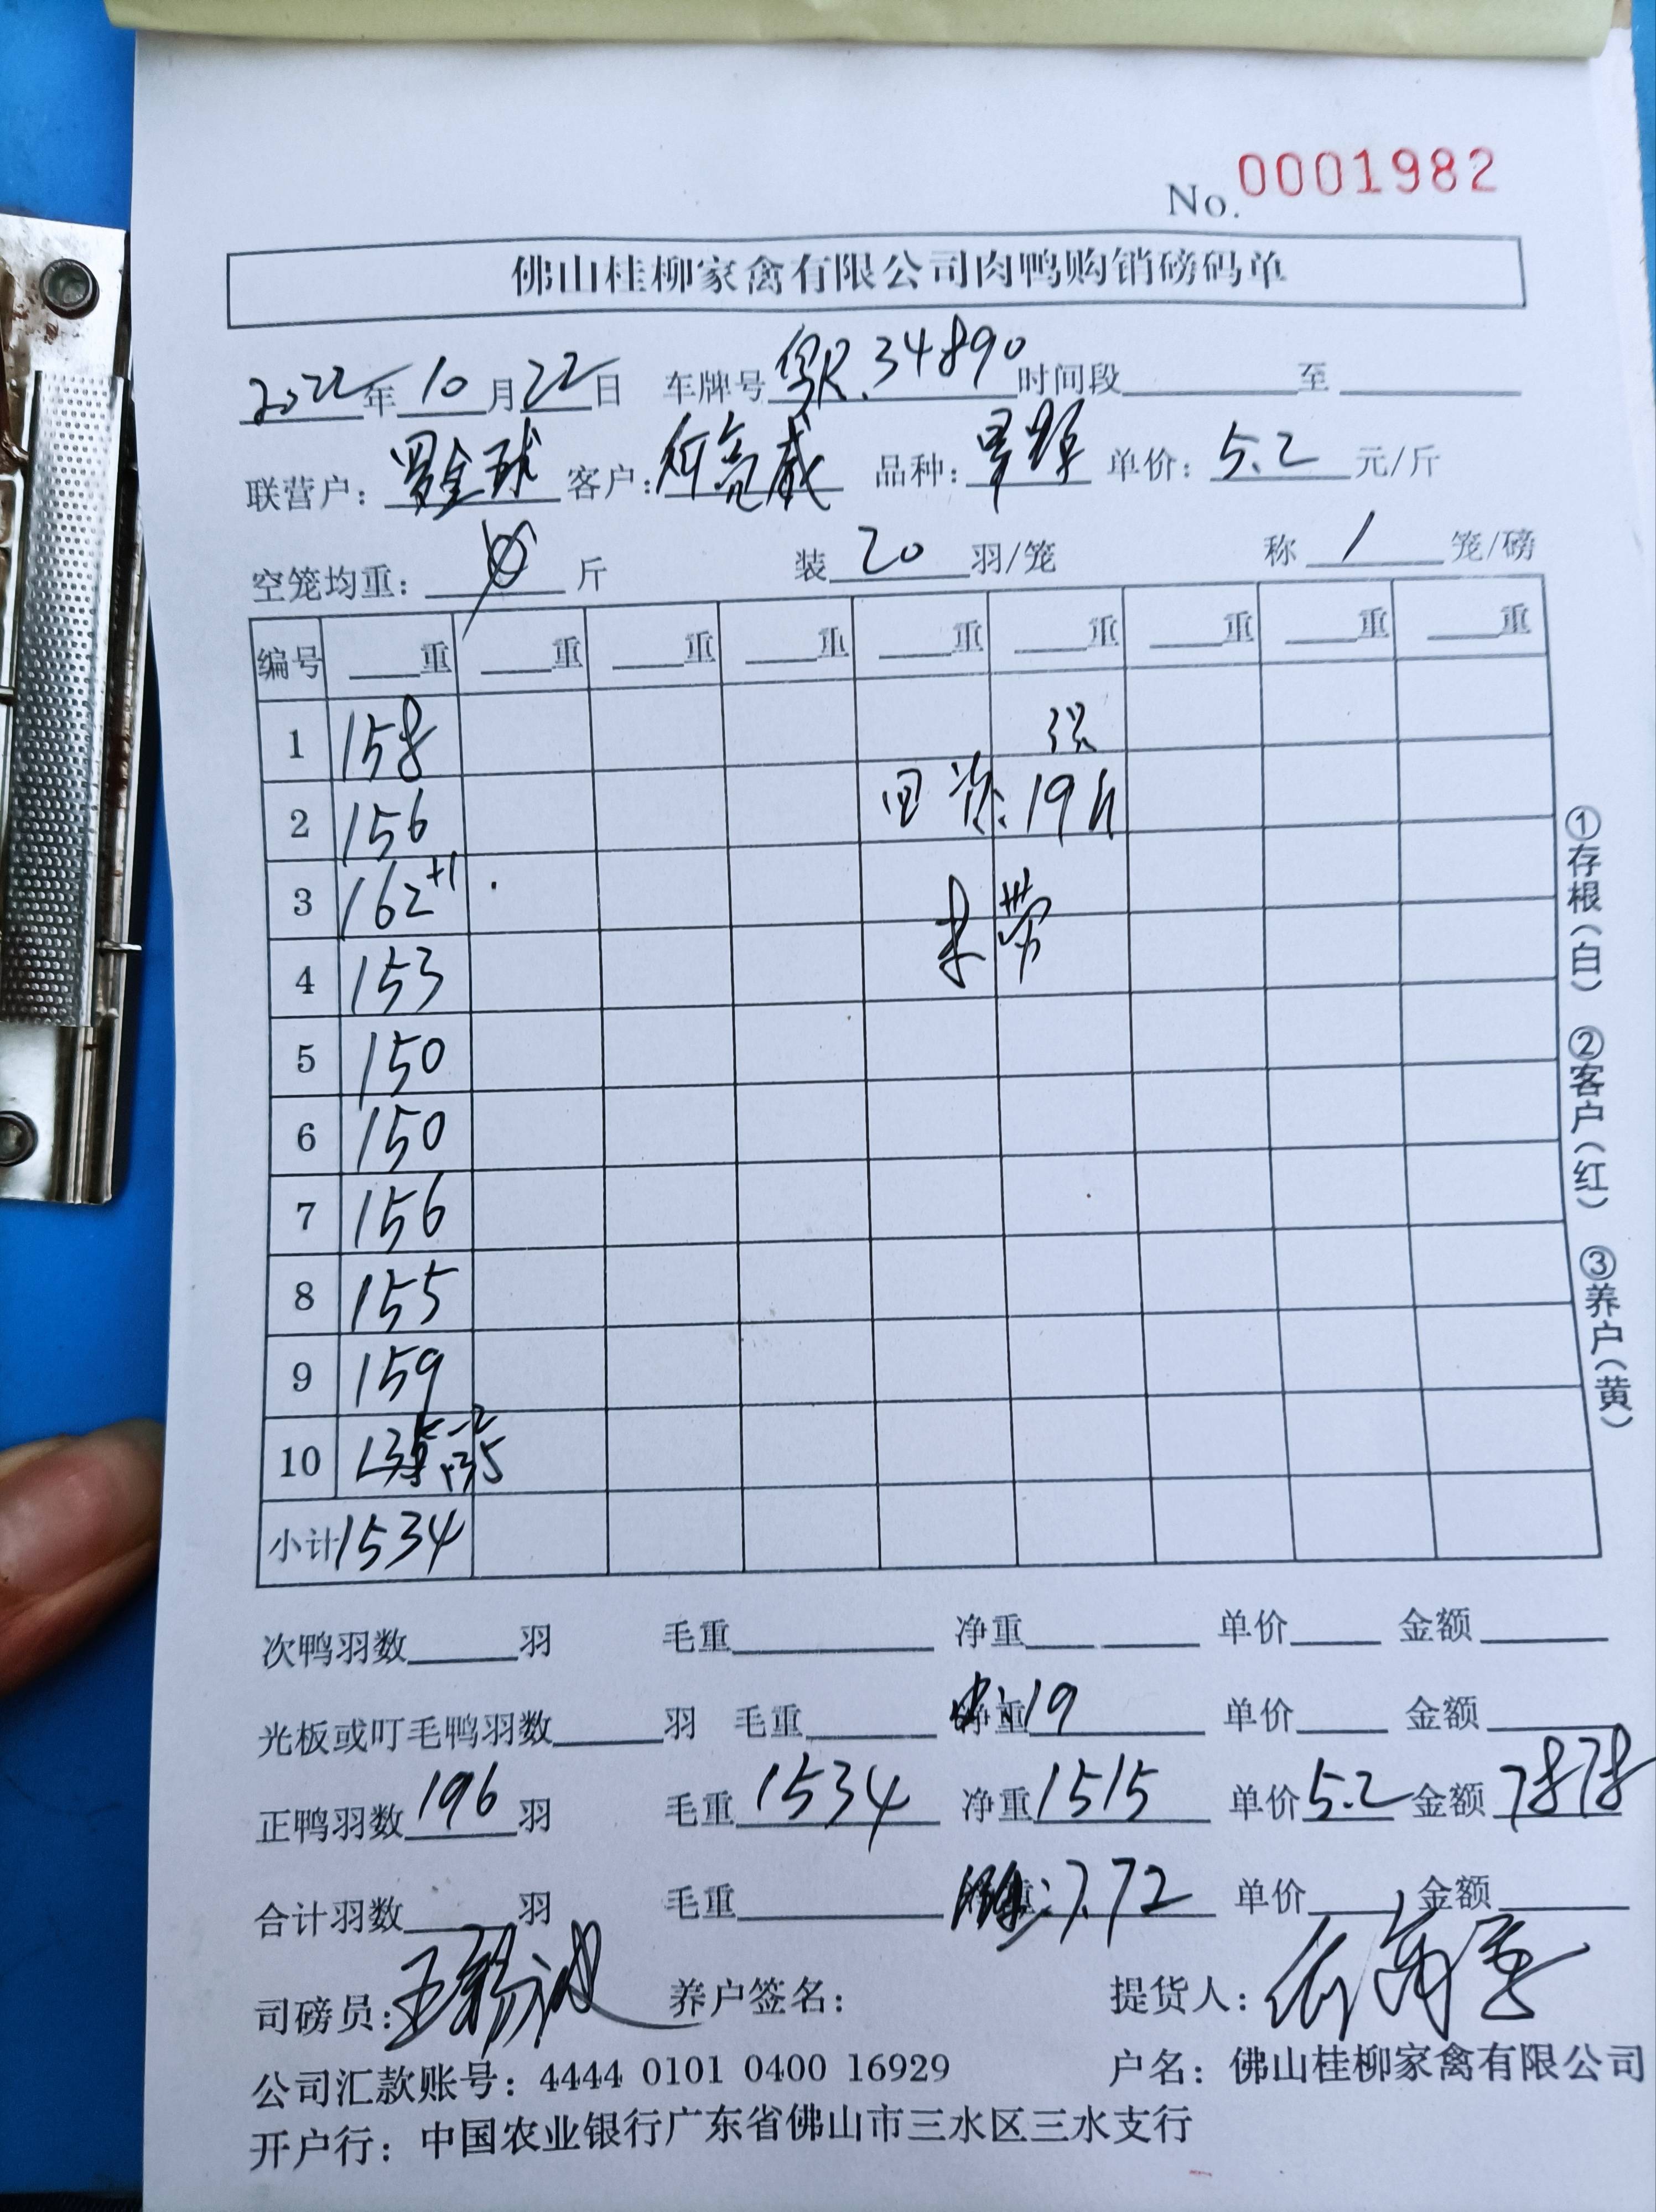 No. 0001982
佛山桂柳家禽有限公司肉鸭购销磅码单
2022年10月22日 车牌号粤R.34890时间段 至
联营户:罗金球 客户:何亮威 品种: 单价:5.2元/斤
空笼均重: 斤 装20羽/笼 称1笼/磅
编号 重 重 重 重 重 重 重 重 重
1 158
2 156 回 19
3 162+1
4 153 未带
5 150
6 150
7 156
8 155
9 159
10 135 -2
小计 1534
次鸭羽数 羽 毛重 净重 单价 金额
光板或叮毛鸭羽数 羽 毛重 净重19 单价 金额
正鸭羽数196羽 毛重1534 净重1515 单价5.2 金额7878
合计羽数 羽 毛重 :7.72 单价 金额
司磅员: 养户签名: 提货人:
公司汇款账号:4444 0101 0400 16929 户名:佛山桂柳家禽有限公司
开户行:中国农业银行广东省佛山市三水区三水支行
①存根(白) ②客户(红) ③养户(黄)